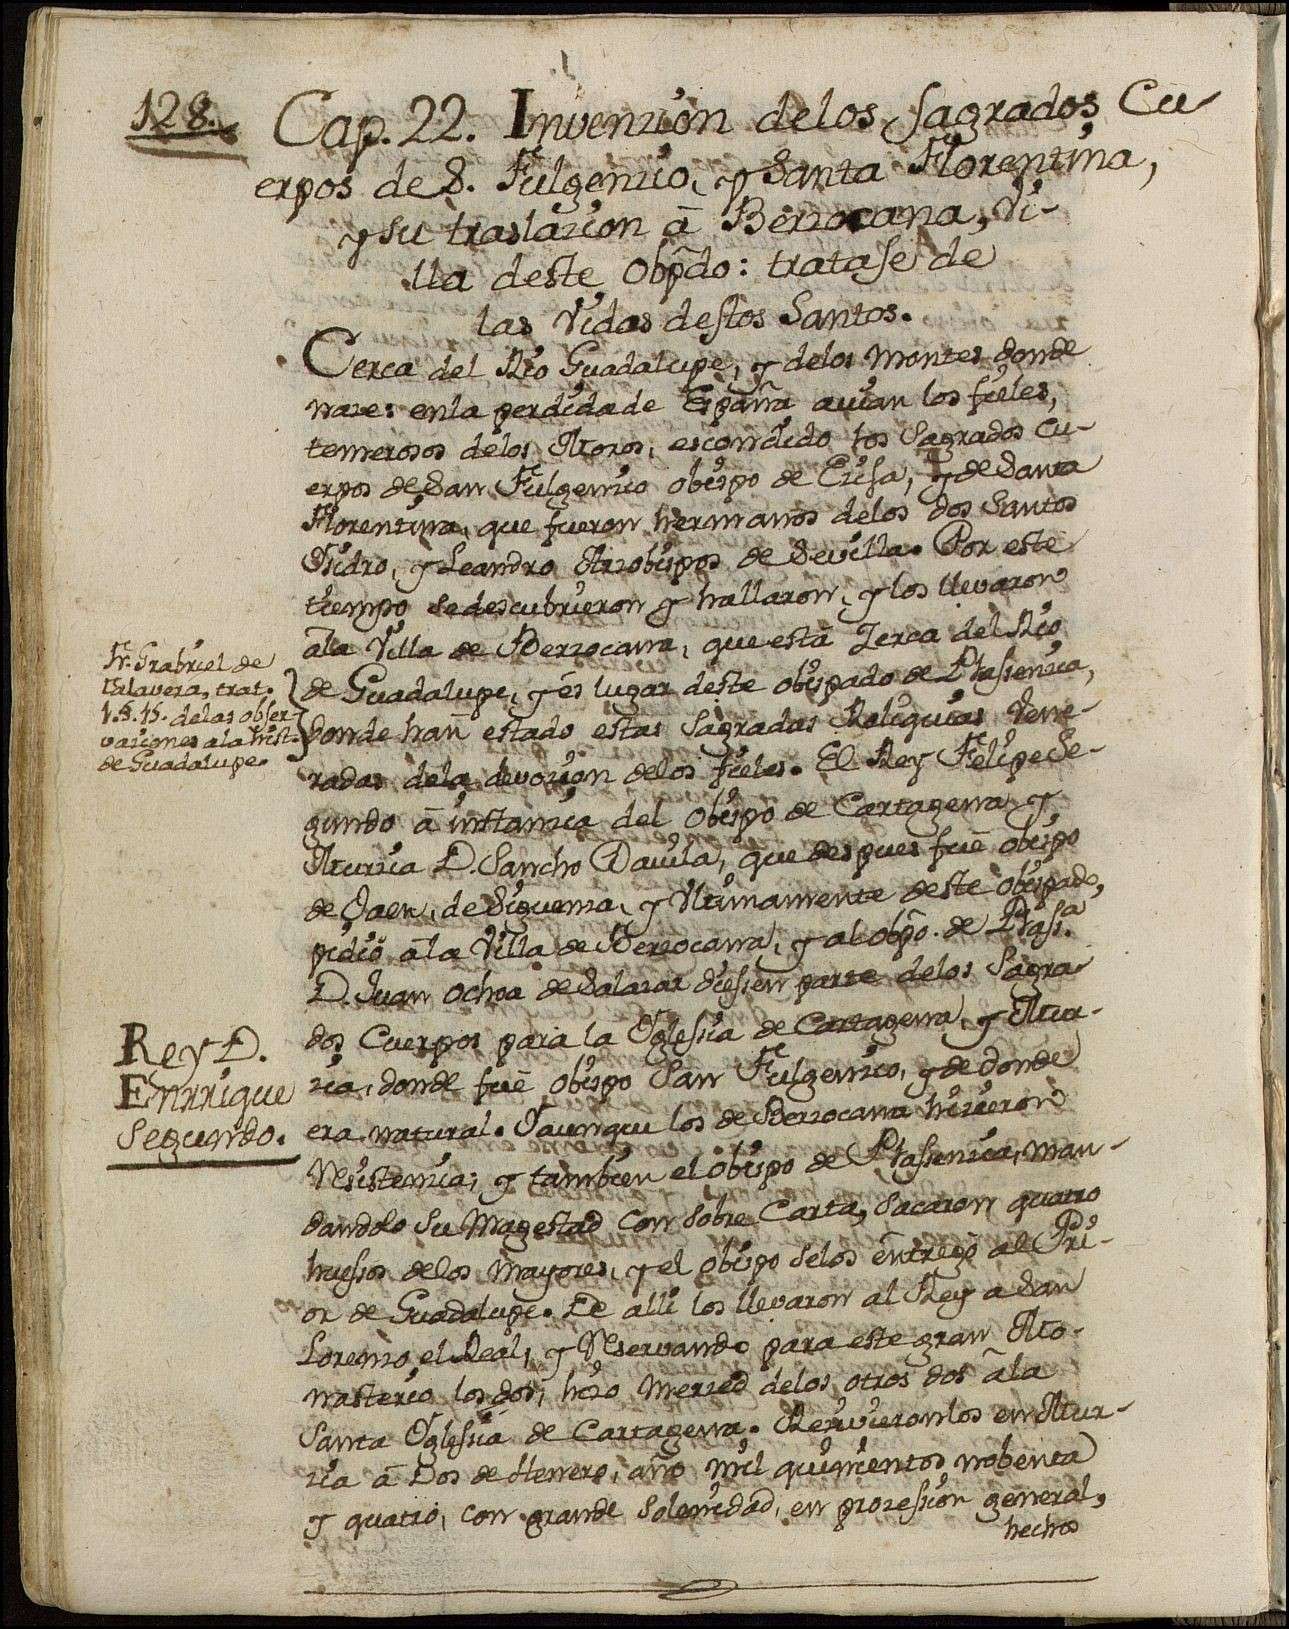 128.
Cap. 22. Invenzion de los sagrados Cu
erpos de S. Fulgenzio, y Santa Florentina,
y su traslazion â Berzocana, Vi-
lla deste Obpdo: tratase de
las Vidas destos Santos.
Cerca del Rio Guadalupe, y delos Montes donde
naze: en la perdida de España avian los fieles,
temerosos delos Moros, escondido los Sagrados Cu-
erpos de San Fulgenzio obispo de Ezija, y de Santa
Florentina, que fueron hermanos delos dos Santos
Isidro, y Leandro Arzobispos de Sevilla. Por este
tiempo se descubrieron y hallaron, y los llevaron
âla Villa de Berzocana, que estâ Zerca del Rio
de Guadalupe, y és lugar deste obispado de Plasenzia,
donde han estado estas Sagradas Reliquias Vene-
radas dela devozion delos fieles. El Rey Felipe Se-
gundo â instanzia del Obispo de Cartagena y
Murzia D. Sancho Davila, que despues fuê obispo
de Jaen, de Siguenza, y Vltimamente deste obispado,
pidiô âla Villa de Berzocana, y al obpo. de Plasa.
D. Juan Ochoa de Salazar diesen parte delos Sagra
dos Cuerpos para la Yglesia de Cartagena, y Mur-
zia, donde fuê obispo San Fulgenzio, y de donde
era natural. Yaunque los de Berzocana hizieron
Resistenzia; y tambien el obispo de Plasenzia, man-
dandolo Su Magestad con sobre Carta, sacaron quatro
huesos delos Mayores, y el obispo selos entregô al Pri-
or de Guadalupe. De alli los llevaron al Rey a San
Lorenzo el Real, y Reservando para este gran Mo-
nasterio los dos, hizo merzed delos otros dos âla
Santa Yglesia de Cartagena. Rezivieronlos en Mur-
zia â Dos de Henero, año mil quinientos nobenta
y quatro, con grande solenidad, en prozesion general,
hechos
Fr. Grabriel de
Talavera, trat.
1.§.15. delas obser-
vaziones ala hist.
de Guadalupe.
Rey D.
Enrrique
Segundo.